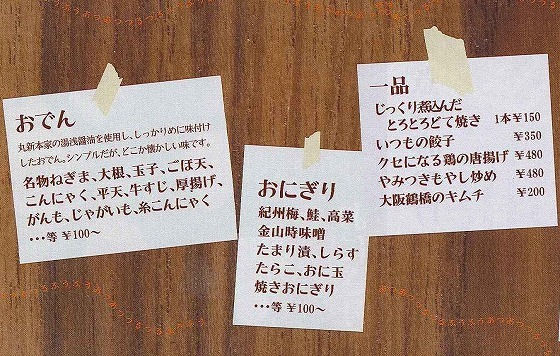 おでん
丸新本家の湯浅醤油を使用し、しっかりめに味付け
したおでん。シンプルだが、どこか懐かしい味です。
名物ねぎま、大根、玉子、ごぼ天、
こんにゃく、平天、牛すじ、厚揚げ、
がんも、じゃがいも、糸こんにゃく
・・・等 ¥100〜
おにぎり
紀州梅、鮭、高菜
金山時味噌
たまり漬、しらす
たらこ、おに玉
焼きおにぎり
・・・等 ¥100〜
一品
じっくり煮込んだ
とろとろどて焼き 1本¥150
いつもの餃子 ¥350
クセになる鶏の唐揚げ ¥480
やみつきもやし炒め ¥480
大阪鶴橋のキムチ ¥200